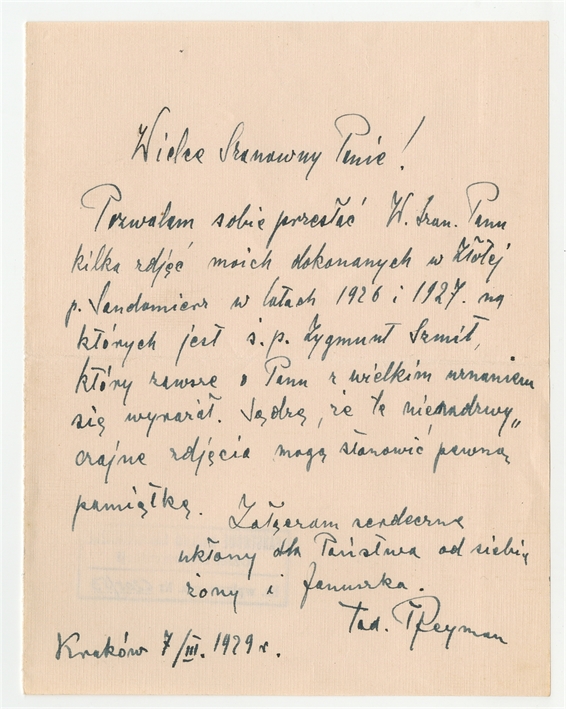 Wielce Szanowny Panie!
Pozwalam sobie przesłać W. Szan. Panu
kilka zdjęć moich dokonanych w Złotej
p. Sandomierz w latach 1926 i 1927. na
których jest ś. p. Zygmunt Szmit,
który zawsze o Panu z wielkim uznaniem
się wyrażał. Sądzę, że te nienadzwy„
czajne zdjęcia mogą stanowić pewną
pamiątkę. Załączam serdeczne
ukłony dla Państwa od siebie
żony i Januszka.
Tad. Reyman
Kraków 7/III. 1929 r.